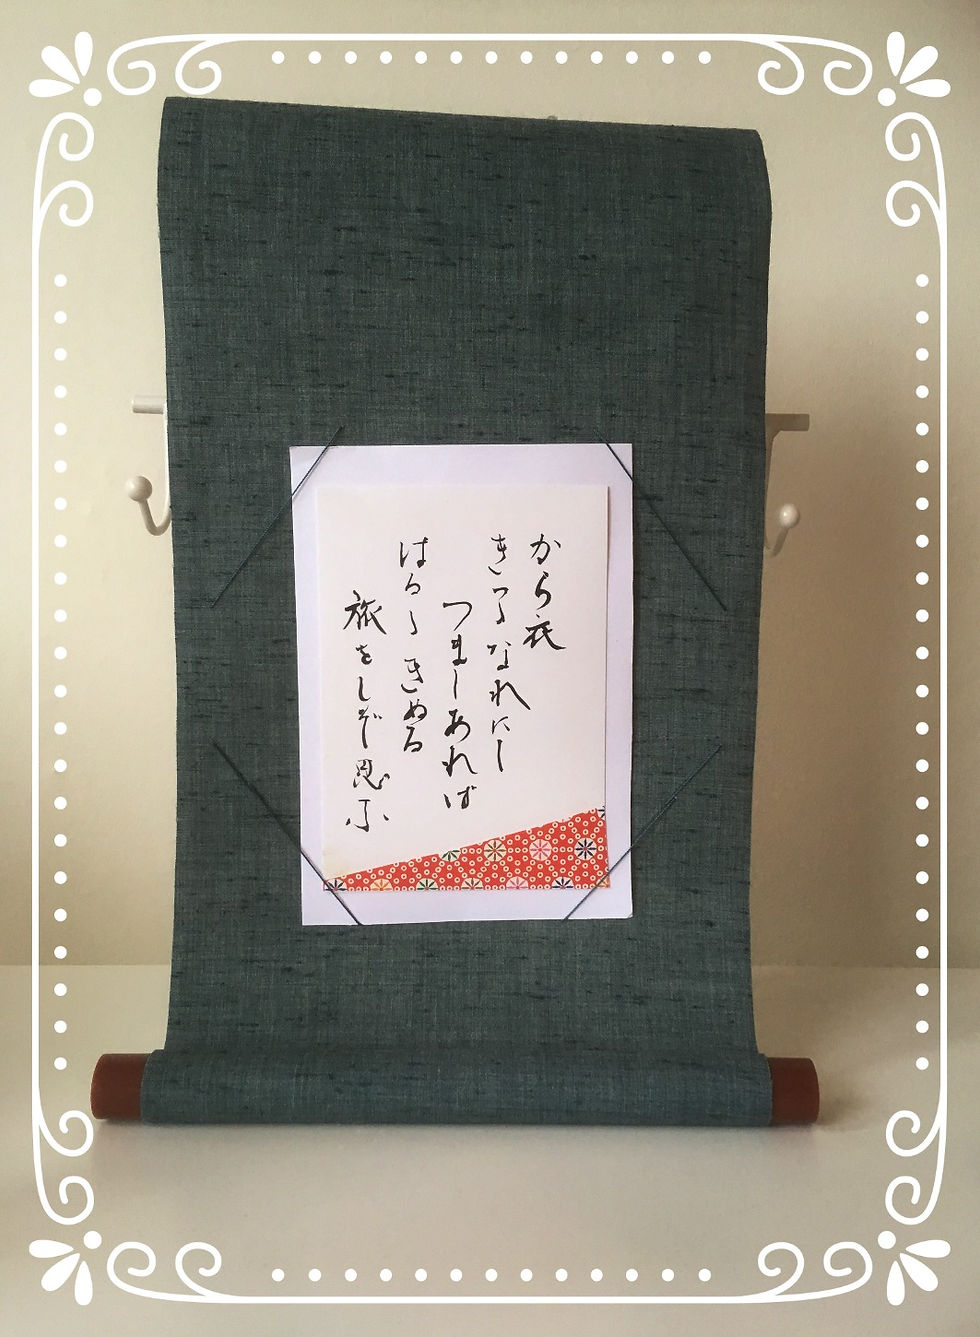 から衣
きつゝなれにし
つましあれば
はる〱きぬる
旅をしぞ思ふ